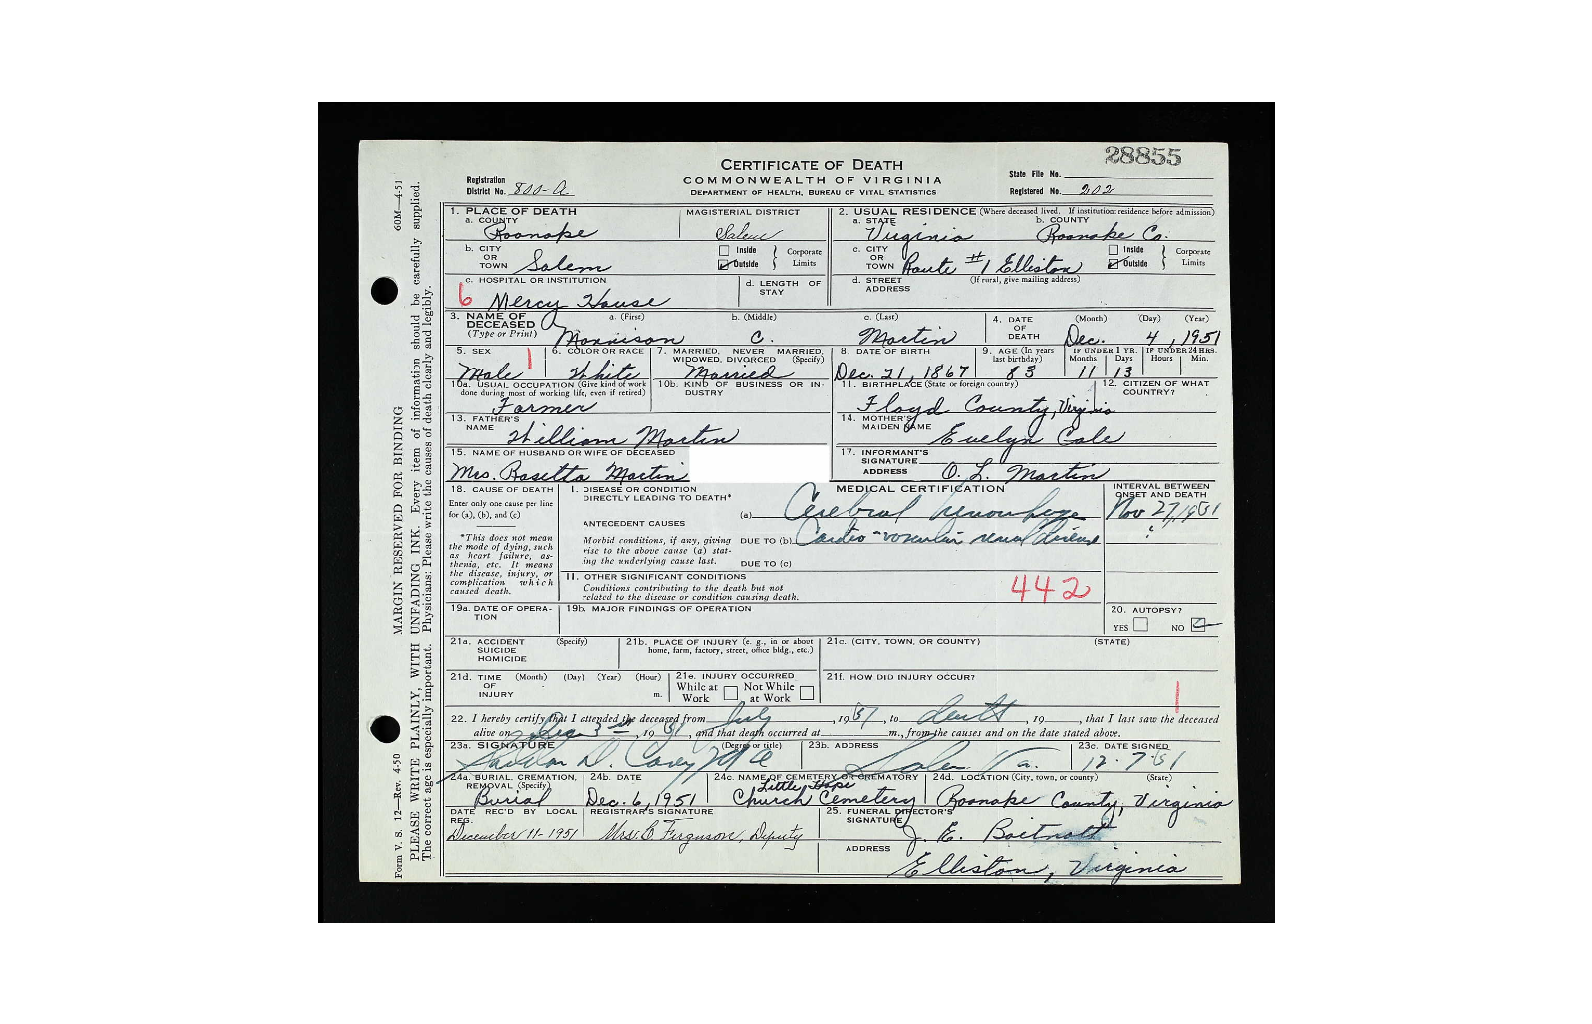 28855
CERTIFICATE OF DEATH
COMMONWEALTH OF VIRGINIA
DEPARTMENT OF HEALTH, BUREAU OF VITAL STATISTICS
Registration District No. 800-A
State File No.
Registered No. 202
1. PLACE OF DEATH
a. COUNTY Roanoke
MAGISTERIAL DISTRICT Salem
2. USUAL RESIDENCE (Where deceased lived. If institution: residence before admission)
a. STATE Virginia
b. COUNTY Roanoke Co.
b. CITY OR TOWN Salem
Inside Outside Corporate Limits
c. CITY OR TOWN Route #1 Elliston
Inside Outside Corporate Limits
c. HOSPITAL OR INSTITUTION
6 Mercy House
d. LENGTH OF STAY
d. STREET ADDRESS (If rural, give mailing address)
3. NAME OF DECEASED (Type or Print)
a. (First) Morrison
b. (Middle) C.
c. (Last) Martin
4. DATE OF DEATH (Month) (Day) (Year)
Dec. 4, 1951
5. SEX Male
6. COLOR OR RACE White
7. MARRIED, NEVER MARRIED, WIDOWED, DIVORCED (Specify) Married
8. DATE OF BIRTH Dec. 21, 1867
9. AGE (In years last birthday) 83
IF UNDER 1 YR. Months Days 11 13
IF UNDER 24 HRS. Hours Min.
10a. USUAL OCCUPATION (Give kind of work done during most of working life, even if retired)
Farmer
10b. KIND OF BUSINESS OR INDUSTRY
11. BIRTHPLACE (State or foreign country)
Floyd County, Virginia
12. CITIZEN OF WHAT COUNTRY?
13. FATHER'S NAME William Martin
14. MOTHER'S MAIDEN NAME Evelyn Cole
15. NAME OF HUSBAND OR WIFE OF DECEASED
Mrs. Rosetta Martin
17. INFORMANT'S SIGNATURE
ADDRESS O. L. Martin
18. CAUSE OF DEATH
Enter only one cause per line for (a), (b), and (c)
*This does not mean the mode of dying, such as heart failure, asthenia, etc. It means the disease, injury, or complication which caused death.
MEDICAL CERTIFICATION
INTERVAL BETWEEN ONSET AND DEATH
I. DISEASE OR CONDITION DIRECTLY LEADING TO DEATH*
(a) Cerebral hemorrhage Nov 27, 1951
ANTECEDENT CAUSES
Morbid conditions, if any, giving rise to the above cause (a) stating the underlying cause last.
DUE TO (b) Cardio-vascular renal disease ?
DUE TO (c)
II. OTHER SIGNIFICANT CONDITIONS
Conditions contributing to the death but not related to the disease or condition causing death.
442
19a. DATE OF OPERATION
19b. MAJOR FINDINGS OF OPERATION
20. AUTOPSY?
YES NO
21a. ACCIDENT SUICIDE HOMICIDE (Specify)
21b. PLACE OF INJURY (e. g., in or about home, farm, factory, street, office bldg., etc.)
21c. (CITY, TOWN, OR COUNTY) (STATE)
21d. TIME OF INJURY (Month) (Day) (Year) (Hour) m.
21e. INJURY OCCURRED
While at Work Not While at Work
21f. HOW DID INJURY OCCUR?
22. I hereby certify that I attended the deceased from July, 1951, to death, 19, that I last saw the deceased
alive on Dec 3, 1951, and that death occurred at m., from the causes and on the date stated above.
23a. SIGNATURE (Degree or title)
23b. ADDRESS Salem Va.
23c. DATE SIGNED 12-7-51
24a. BURIAL, CREMATION, REMOVAL (Specify) Burial
24b. DATE Dec. 6, 1951
24c. NAME OF CEMETERY OR CREMATORY
Little Hope Church Cemetery
24d. LOCATION (City, town, or county) (State)
Roanoke County, Virginia
DATE REC'D BY LOCAL REG. December 11-1951
REGISTRAR'S SIGNATURE Mrs. C Ferguson, Deputy
25. FUNERAL DIRECTOR'S SIGNATURE J. E. Boitnott
ADDRESS Elliston, Virginia
Form V. S. 12—Rev. 4-50 MARGIN RESERVED FOR BINDING 60M—4-51
PLEASE WRITE PLAINLY, WITH UNFADING INK. Every item of information should be carefully supplied.
The correct age is especially important. Physicians: Please write the causes of death clearly and legibly.